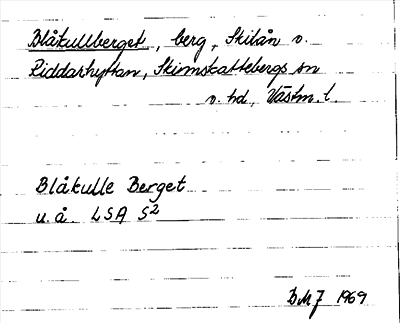 Blåkullberget, berg, Skilån v.
Riddarhyttan, Skinnskattebergs sn
o. hd, Västm. l.
Blåkulle Berget
u.å. LSA S2
1969